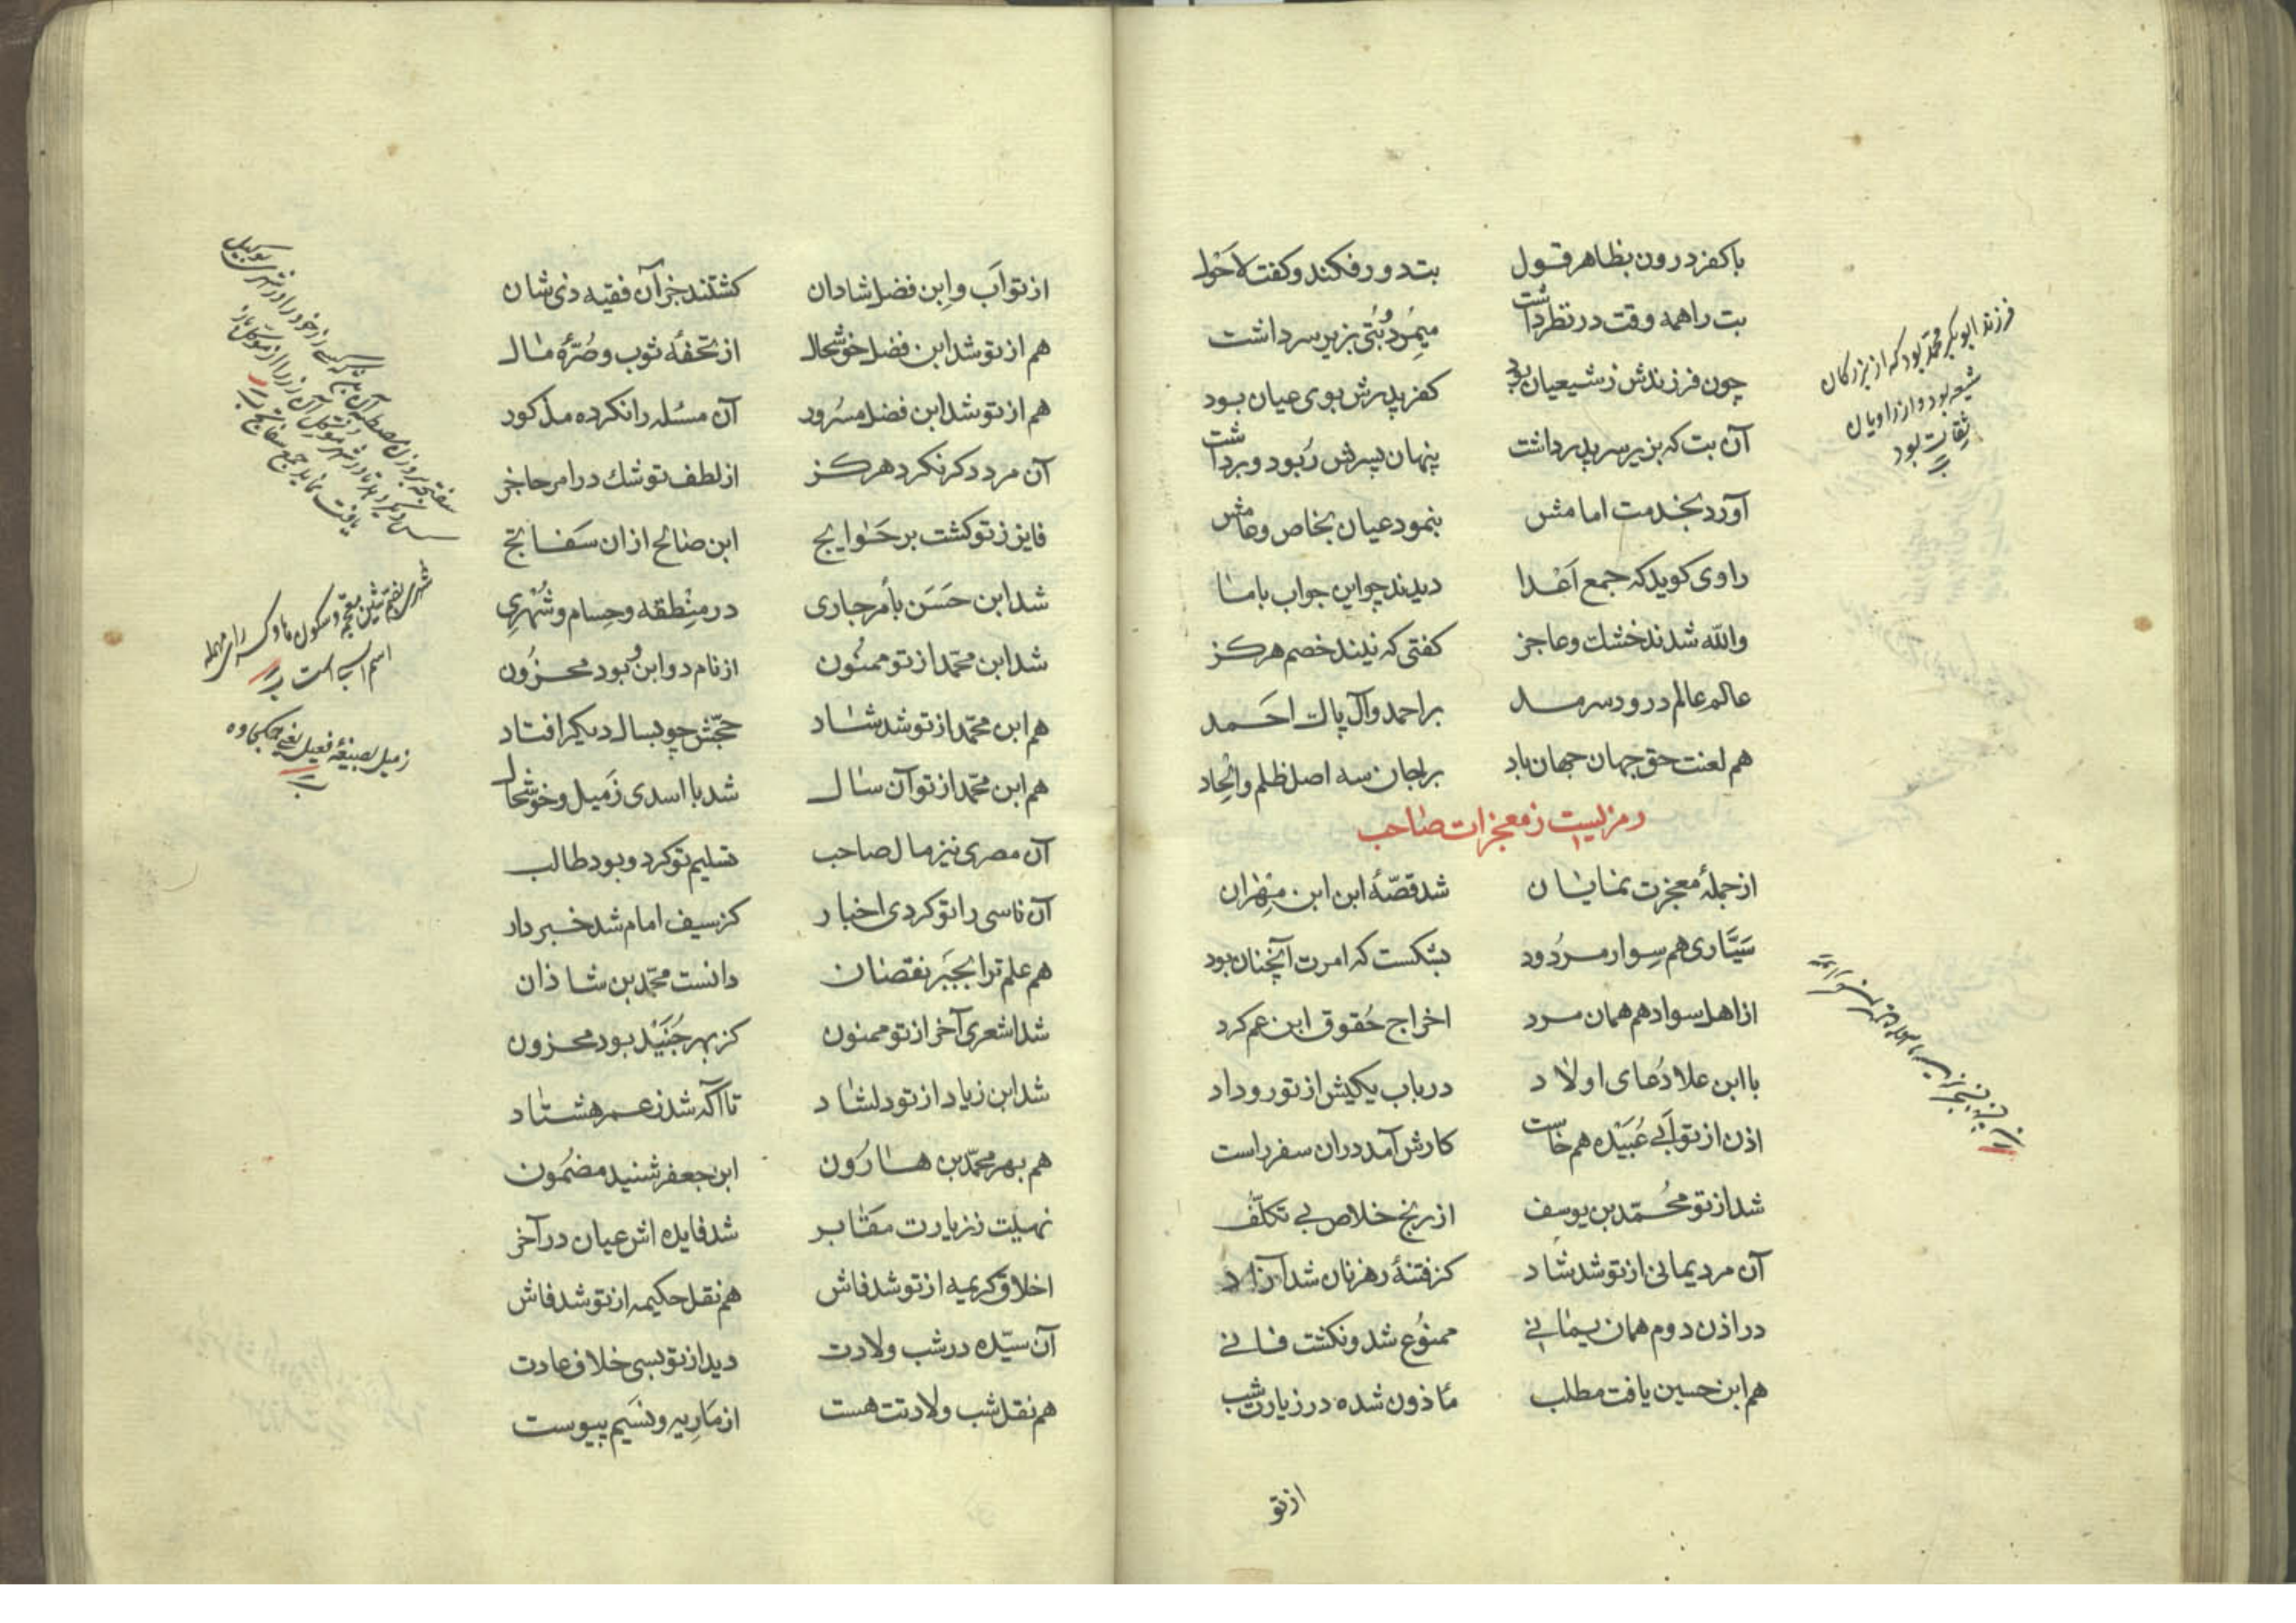 با کفر درون بظاهر قول	بت دور فکند و کفت لاحول
بت را همه وقت در نظر داشت	میمرد و بتی بزیر سر داشت
چون فرزندش ز شیعیان بود	کفر پدرش بوی عیان بود
آن بت که بزیر سر پدر داشت	پنهان پسرش ربود و برداشت
آورد بخدمت امامش	بنمود عیان بخاص و عامش
راوی کوید که جمع اعدا	دیدند چو این جواب با ما
والله شدند خشك و عاجز	کفتی که نیند خصم هرکز
عالم عالم درود سرمد	بر احمد و آل پاك احمد
هم لعنت حق جهان جهان باد	بر جان سه اصل ظلم و الحاد
رمزیست ز معجزات صاحب
از جملهٔ معجزت نمایان	شد قصهٔ ابن ابن مهزان
سیّاری هم سوار مردود	بشکست که امرت آنچنان بود
از اهل سواد هم همان مرد	اخراج حُقوق ابن عم کرد
با ابن علا دُعای اولاد	در باب یکیش از تو رو داد
اذن از تو اَبی عُبَیْده هم خواست	کارش آمد دران سفر راست
شد از تو محُمّد بن یوسف	از رنج خلاص بی تکلّف
آن مرد یمانی از تو شد شاد	کز فتنهٔ رهزنان شد آزاد
در اذن دوم همان یمانی	ممنوُع شد و نکشت فانی
هم ابن حسین یافت مطلب	مأذون شده در زیارت شب
از تو
فرزند ابو بکر محمّد بود که از بزرکان
شیعه بود و از راویان
ثقات بود
از تو آب و ابن فضل شادان	کشتند جز آن فقیه دنی شان
هم از تو شد ابن فضل خوشحال	از تحفهٔ ثوب و صُرّهٔ مال
هم از تو شد ابن فضل مسرُور	آن مسئله را نکرده مذکور
آن مرد دکر نکرد هرکز	از لطف تو شك در امر حاجز
فایز ز تو کشت بر حَوایج	ابن صالح ازان سَفاتج
شد ابن حَسَن بأمر جاری	در مِنْطقه و حِسام و شُهْرِی
شد ابن محمّد از تو ممنُون	از نام دو ابن و بود محزُون
هم ابن محمّد از تو شد شاد	حجّش چو بسال دیکر افتاد
هم ابن محمّد از تو آن سال	شد با اسدی زَمیل و خوشحال
آن مصری نیز مال صاحب	تسلیم تو کرد و بود طالب
آن فاسی را تو کردی اخبار	کز سیف امام شد خبردار
هم علم ترا بجبَر نقصان	دانست محمّد بن شاذان
شد اشعری آخر از تو ممنون	کز بهر جُنَیْد بود محزون
شد ابن زیاد از تو دلشاد	تا آکه شد ز عمر هشتاد
هم بهر محمّد بن هارُون	ابن جعفر شنید مضمُون
نهیت ز زیارت مقابر	شد فایده اش عیان در آخر
اخلاق کریمه از تو شد فاش	هم نقل حکیمه از تو شد فاش
آن سیّده در شب ولادت	دید از تو بسی خلاف عادت
هم نقل شب ولادتت هست	از مَاریه و نَسَیم پیوست
شهری بضم شین معجمه و سکون ها و کسر رای مهمله
اسم اسپ است
زمیل بصیغهٔ فعیل یعنی هم کجاوه